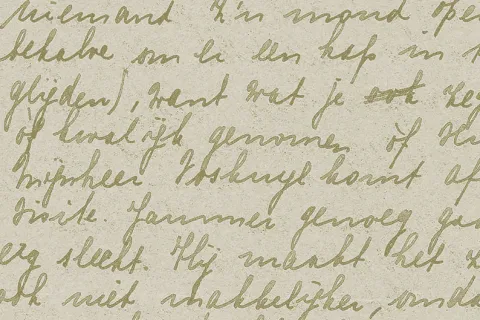 niemand z'n mond open
behalve om er een hap in t
glijden), want wat je ook zeg
òf kwalijk genomen òf
mijnheer Voskuyl komt af
visite. Jammer genoeg gaa
erg slecht. Hij maakt het z
ook niet makkelijker, omda